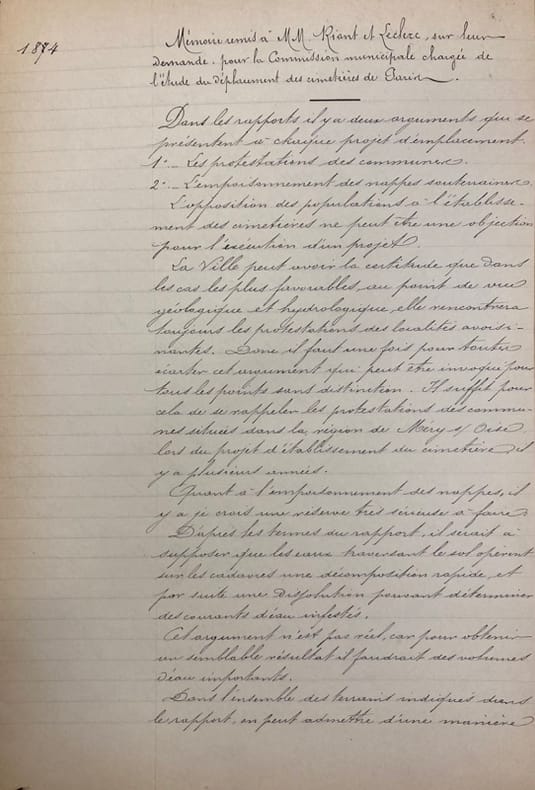 1874
Mémoire remis à M.M. Riant et Leclerc, sur leur
demande, pour la Commission municipale chargée de
l'étude du déplacement des cimetières de Paris.
Dans les rapports il y a deux arguments qui se
présentent à chaque projet d'emplacement.
1°_ Les protestations des communes.
2°_ L'empoisonnement des nappes souterraines.
L'opposition des populations à l'établisse-
ment des cimetières ne peut être une objection
pour l'exécution d'un projet.
La Ville peut avoir la certitude que dans
les cas les plus favorables, au point de vue
géologique et hydrologique, elle rencontrera
toujours les protestations des localités avoisi-
nantes. Donc il faut une fois pour toutes
écarter cet argument qui peut être invoqué pour
tous les points sans distinction. Il suffit pour
cela de se rappeler les protestations des commu-
nes situées dans la région de Méry s/ Oise
lors du projet d'établissement du cimetière, il
y a plusieurs années.
Quant à l'empoisonnement des nappes, il
y a je crois une réserve très sérieuse à faire.
D'après les termes du rapport, il serait à
supposer que les eaux traversant le sol opèrent
sur les cadavres une décomposition rapide, et
par suite une dissolution pouvant déterminer
des courants d'eau infestés.
Cet argument n'est pas réel, car pour obtenir
un semblable résultat il faudrait des volumes
d'eau importants.
Dans l'ensemble des terrains indiqués dans
le rapport, on peut admettre d'une manière